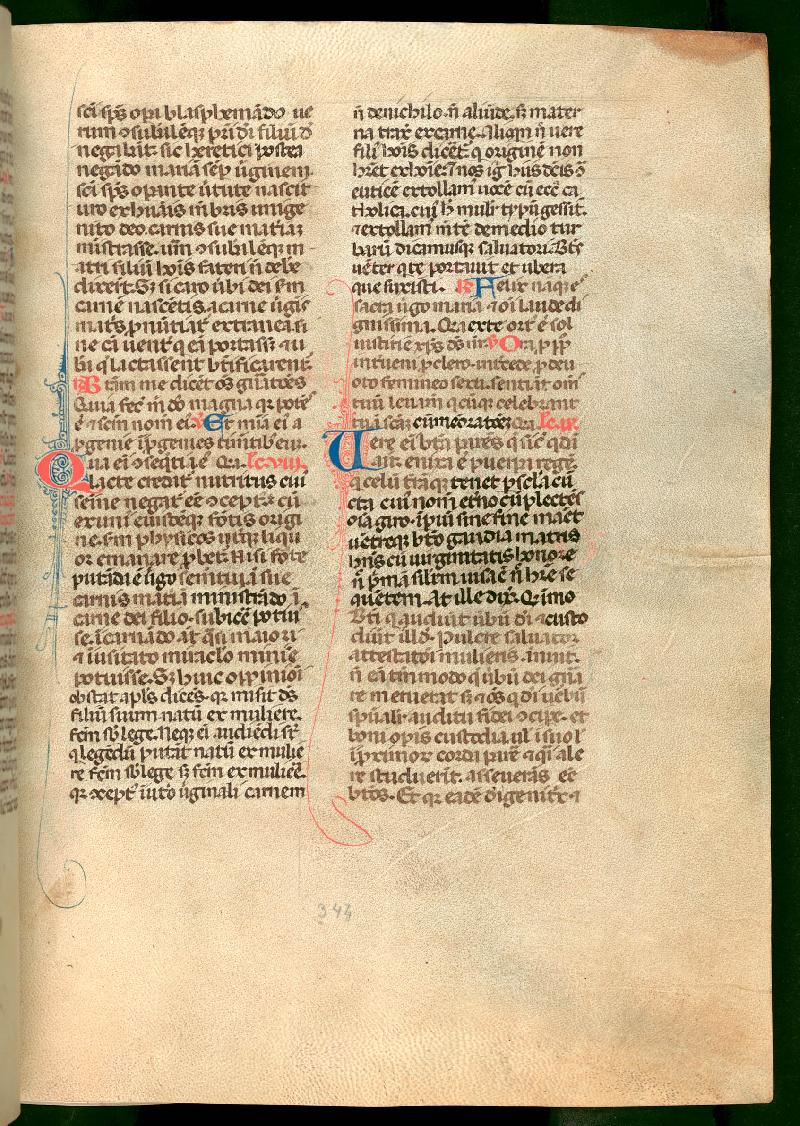 sci sps opi blasphemādo ue
rum ⁊ subiłeq; pri di filiū d'
negabūt. sic heretici postea
negādo mariā sēp ūginem
sci sps opante ūtute nascit
uro ex huāis mbris unige
nito deo. carnis sue matiaz
mistrasse. um ⁊ subiłeq; m
atri filiū hois fateri n̄ debe
dixerūt. Si caro ūbi dei sm
carnē nascētis a carne ūgis
mats pnūtiat extranea. si
ne cā uent' q eū portass; ⁊ u
bi q̄ lactassent btificarent.
R Btām me dicēt oēs gn̄atōes
Quia fec' m dō magna qr potē
ē ⁊ scm nom ei. V Et mīa ei a
pgenie ī pgenies timtib; eū.
Qua ei ⁊ seqtia ē Qa. lc. viii.
lacte credit' nutritus cui'
semine negat' eē ⁊ cept'. cū
ex uni' eiusdeq; fōtis origi
ne. sm physicos utrq; liqu
or emanare pbet'. Nisi forte
putādā ē ūgo semītiuā sue
carnis matiā ministrādo ī
carne dei filio. subicē potui
se. īcarnādo at q̄si maiori
⁊ īusitato miraclo minīe
potuisse. S; huic oppinioī
obstat apls dices. qr misit ds
filiū suum natū ex muliere.
fcm sb lege. Neq; ei audiēdi st'
q legēdū putāt natū ex mulie
re fcm sb lege s; fcm ex muliēē.
qr ⁊cept' ī uto ūginali carnem
n̄ de nichilo. n̄ aliūde. s; mater
na traxit ex carne. Alioqn n̄ uere
fili' hois dicēt'. q originē non
hēret ex hoīe. ⁊ nos ig' hiis dcīs ⁊
euticē extollam' uocē cū ecc ca
tholica. cui' h' muli' typū gessit.
⁊ extollam' mtē de medio tur
barū dicamusq; saluatori. Bte
uēter q te portauit et ubera
que suxisti. R Felix naq; es
sacra ūgo maria ⁊ oi laude di
gnissima. Qa ex te ort' ē sol
iustitie xps ds nr. V Ora p pp
intueni p clero. intcede p deu
oto femineo sexu. sentiāt om̄s
tuū leuam' qcūq; celebrant
tuā scam cūmeoratōez. Qa. lc. ix.
Uere ei btā parēs q sic qdā
ait. enixa ē puerpa regē.
q celū traq; tenet p secla cu
cta. cui' nom̄ et no cū plectēs
oīa giro. ipiū sine fine māet
uētreq; bto gaudia matris
hns cū uirginitatis honore
n̄ pmā silem uisa ē n̄ hre se
quētem. At ille dix'. Qīmo
Bti q audiūt ūbū di ⁊ custo
diūt illd. Pulcre saluator
attestatōi mulieris. ānuit.
n̄ eā tm̄modo q ūbū dei gn̄a
re meruerat. s; ⁊ oēs q di uebū
spūali auditu fidei ⁊cipe. et
boni opis custodia ul' ī suo l'
ī pximor' cordi parē ⁊ q̄i ale
re studuerit. asseuerās eē
btōs. Et qr eadē di genitrix ⁊
344